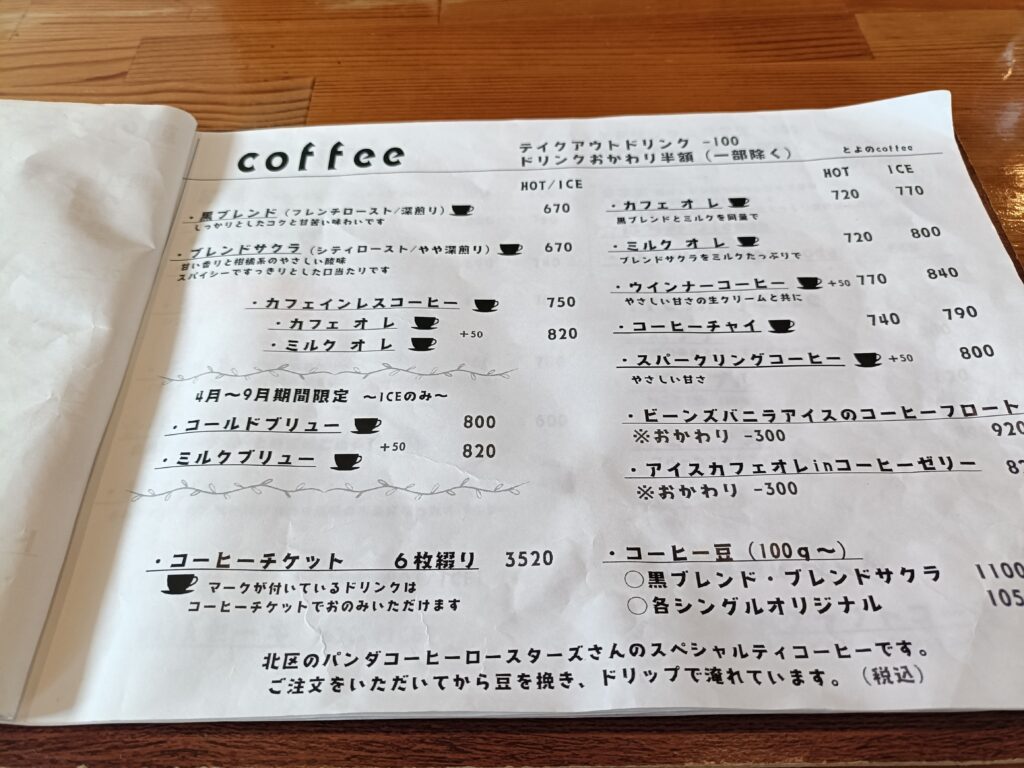 coffee
テイクアウトドリンク -100
ドリンクおかわり半額（一部除く）
とよのcoffee
HOT/ICE
・黒ブレンド（フレンチロースト/深煎り） 670
しっかりとしたコクと甘苦い味わいです
・ブレンドサクラ（シティロースト/やや深煎り） 670
甘い香りと柑橘系のやさしい酸味
スパイシーですっきりとした口当たりです
・カフェインレスコーヒー 750
・カフェ オ レ
・ミルク オ レ +50 820
4月～9月期間限定 ～ICEのみ～
・コールドブリュー 800
・ミルクブリュー +50 820
・コーヒーチケット 6枚綴り 3520
マークが付いているドリンクは
コーヒーチケットでおのみいただけます
HOT ICE
・カフェ オ レ 720 770
黒ブレンドとミルクを同量で
・ミルク オ レ 720 800
ブレンドサクラをミルクたっぷりで
・ウインナーコーヒー +50 770 840
やさしい甘さの生クリームと共に
・コーヒーチャイ 740 790
・スパークリングコーヒー +50 800
やさしい甘さ
・ビーンズバニラアイスのコーヒーフロート
※おかわり -300 920
・アイスカフェオレinコーヒーゼリー
※おかわり -300
・コーヒー豆（100g～）
○黒ブレンド・ブレンドサクラ 1100
○各シングルオリジナル
北区のパンダコーヒーロースターズさんのスペシャルティコーヒーです。
ご注文をいただいてから豆を挽き、ドリップで淹れています。（税込）